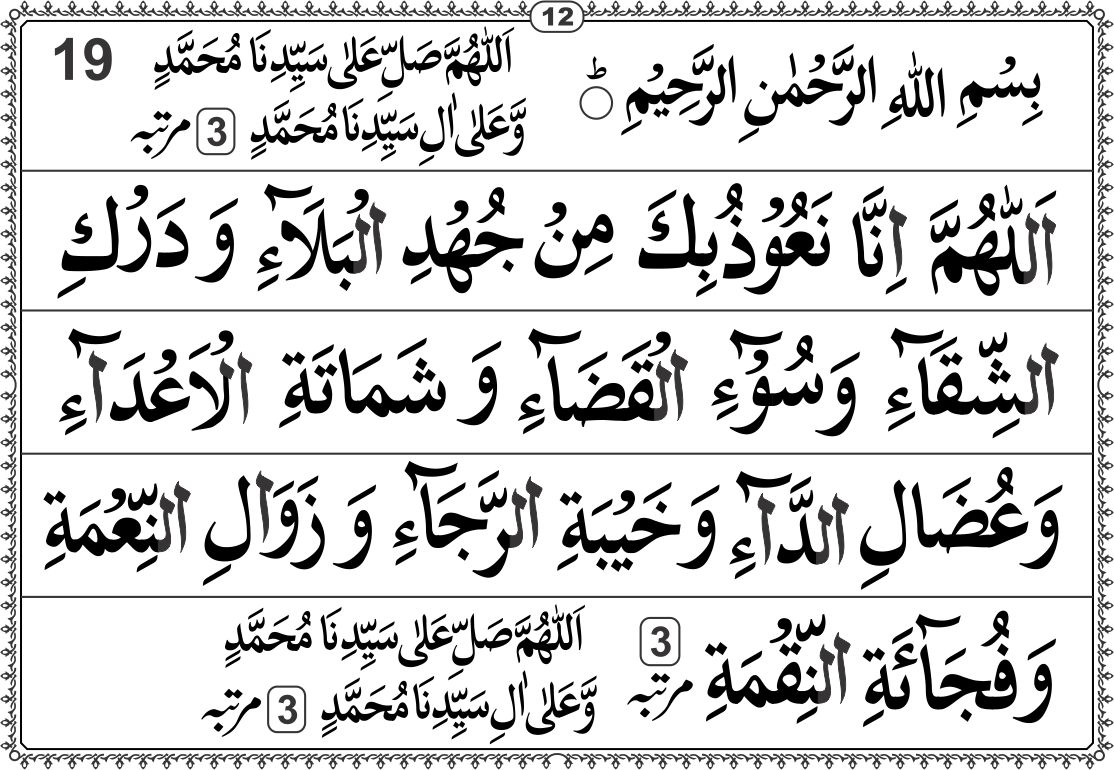 12
19
بِسْمِ اللهِ الرَّحْمٰنِ الرَّحِيْمِ ○ ط
اَللّٰهُمَّ صَلِّ عَلٰى سَيِّدِنَا مُحَمَّدٍ
وَّعَلٰى اٰلِ سَيِّدِنَا مُحَمَّدٍ 3 مرتبہ
اَللّٰهُمَّ اِنَّا نَعُوْذُبِكَ مِنْ جُهْدِ الْبَلَآءِ وَ دَرْكِ
الشِّقَآءِ وَسُوْٓءِ الْقَضَآءِ وَ شَمَاتَةِ الْاَعْدَآءِ
وَعُضَالِ الدَّآءِ وَخَيْبَةِ الرَّجَآءِ وَ زَوَالِ النِّعْمَةِ
وَفُجَآئَةِ النِّقْمَةِ 3 مرتبہ
اَللّٰهُمَّ صَلِّ عَلٰى سَيِّدِنَا مُحَمَّدٍ
وَّعَلٰى اٰلِ سَيِّدِنَا مُحَمَّدٍ 3 مرتبہ